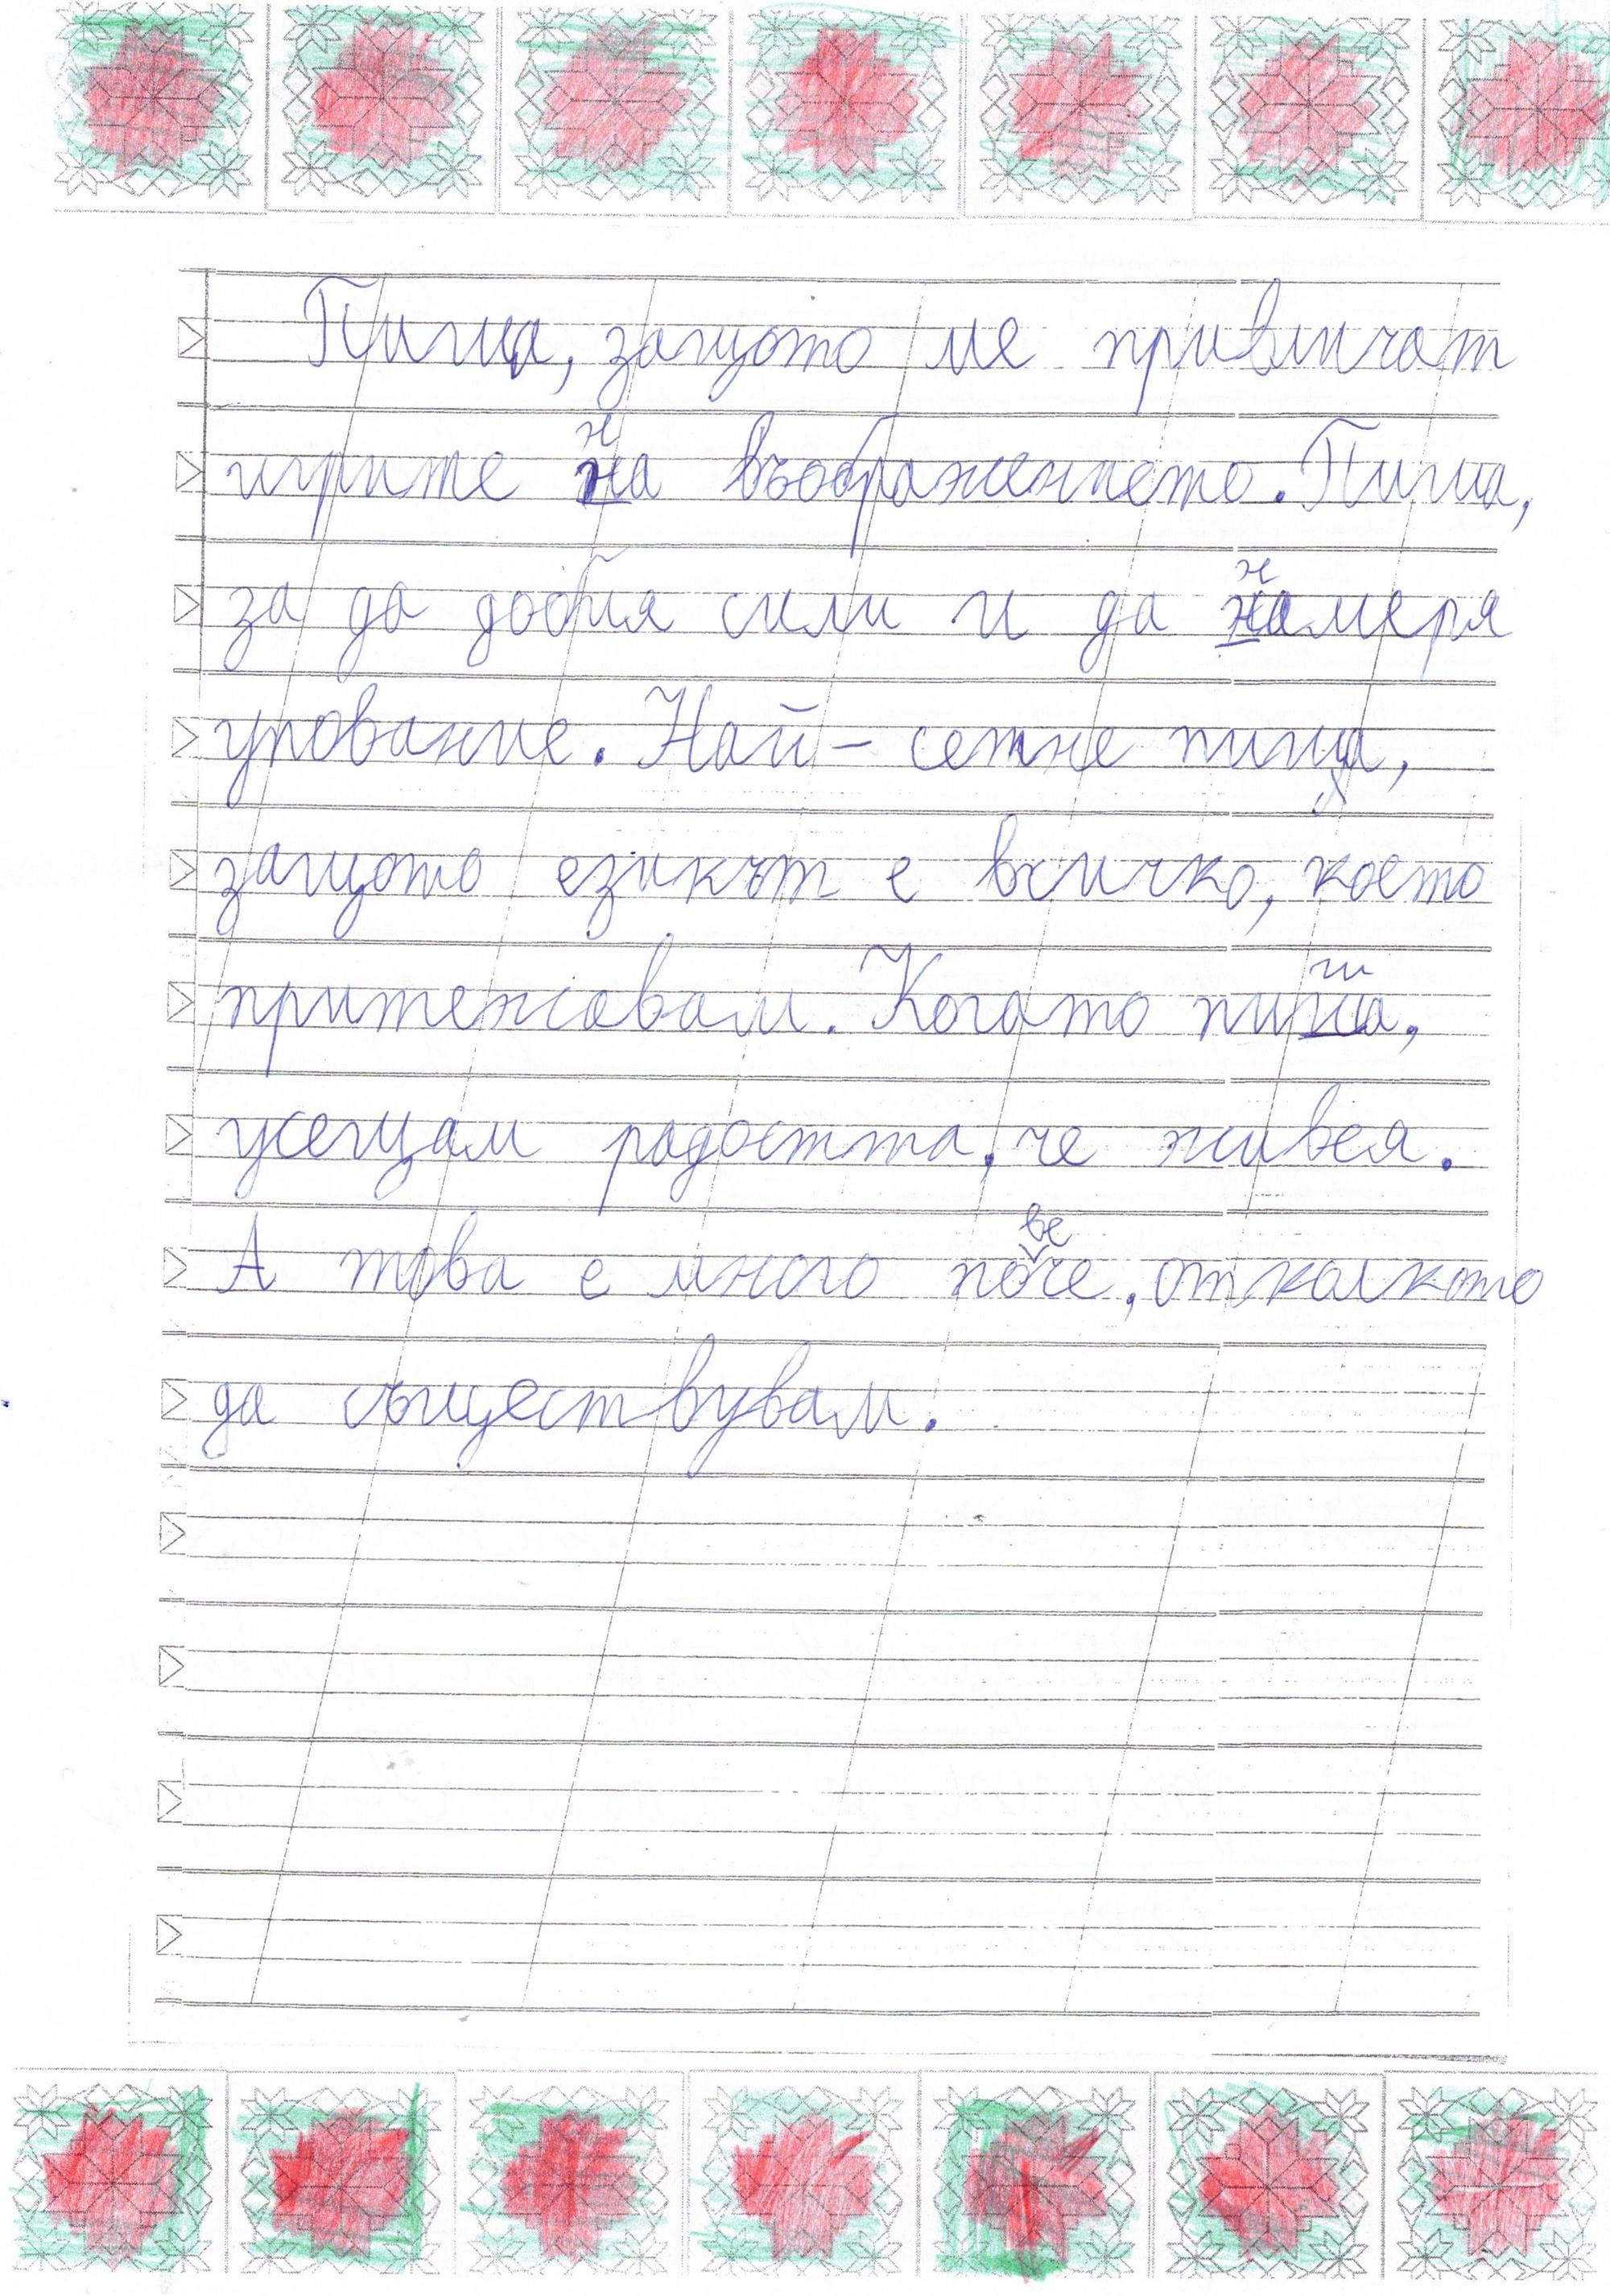 Пиша, защото ме привличат
игрите на въображението. Пиша,
за да добия сили и да намеря
упование. Най-сетне пиша,
защото езикът е всичко, което
притежавам. Когато пиша,
усещам радостта, че живея.
А това е много повече, отколкото
да съществувам.